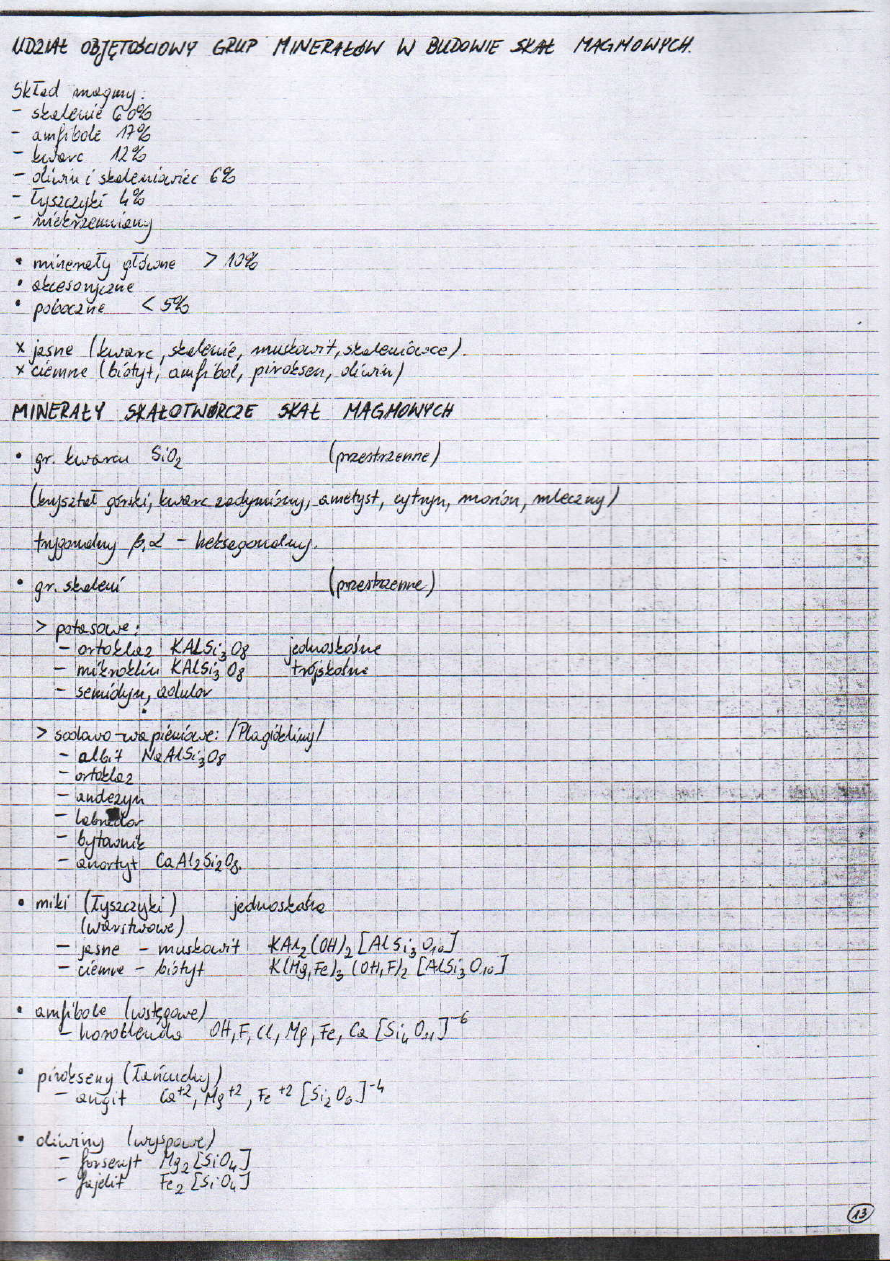 UDZIAŁ OBJĘTOŚCIOWY GRUP MINERAŁÓW W BUDOWIE SKAŁ MAGMOWYCH.
Skład magmy:
- skalenie 60%
- amfibole 17%
- kwarc 12%
- oliwin i skaleniowiec 6%
- łyszczyki 4%
- niekrzemiany
• minerały główne > 10%
• akcesoryczne
• poboczne < 5%
x jasne (kwarc, skalenie, muskowit, skaleniowce).
x ciemne (biotyt, amfibol, piroksen, oliwin)
MINERAŁY SKAŁOTWÓRCZE SKAŁ MAGMOWYCH
• gr. kwarcu SiO₂ (przestrzenne)
(kryształ górski, kwarc zadymiony, ametyst, cytryn, morion, mleczny)
trygonalny β, α - heksagonalny.
• gr. skaleni (przestrzenne)
> potasowe:
- ortoklaz KAlSi₃O₈ jednoskośne
- mikroklin KAlSi₃O₈ trójskośne
- sanidyn, adular
> sodowo-wapieniowe: /Plagioklazy/
- albit NaAlSi₃O₈
- ortoklaz
- andezyn
- labrador
- bytownit
- anortyt CaAl₂Si₂O₈.
• miki (łyszczyki) jednoskośne
(warstwowe)
- jasne - muskowit KAl₂(OH)₂[AlSi₃O₁₀]
- ciemne - biotyt K(Mg,Fe)₃(OH,F)₂[AlSi₃O₁₀]
• amfibole (wstęgowe)
- hornblenda OH, F, Cl, Mg, Fe, Ca [Si₄O₁₁]⁻⁶
• pirokseny (łańcuchy)
- augit Ca⁺², Mg⁺², Fe⁺² [Si₂O₆]⁻⁴
• oliwiny (wyspowe)
- forseryt Mg₂[SiO₄]
- fajalit Fe₂[SiO₄]
13